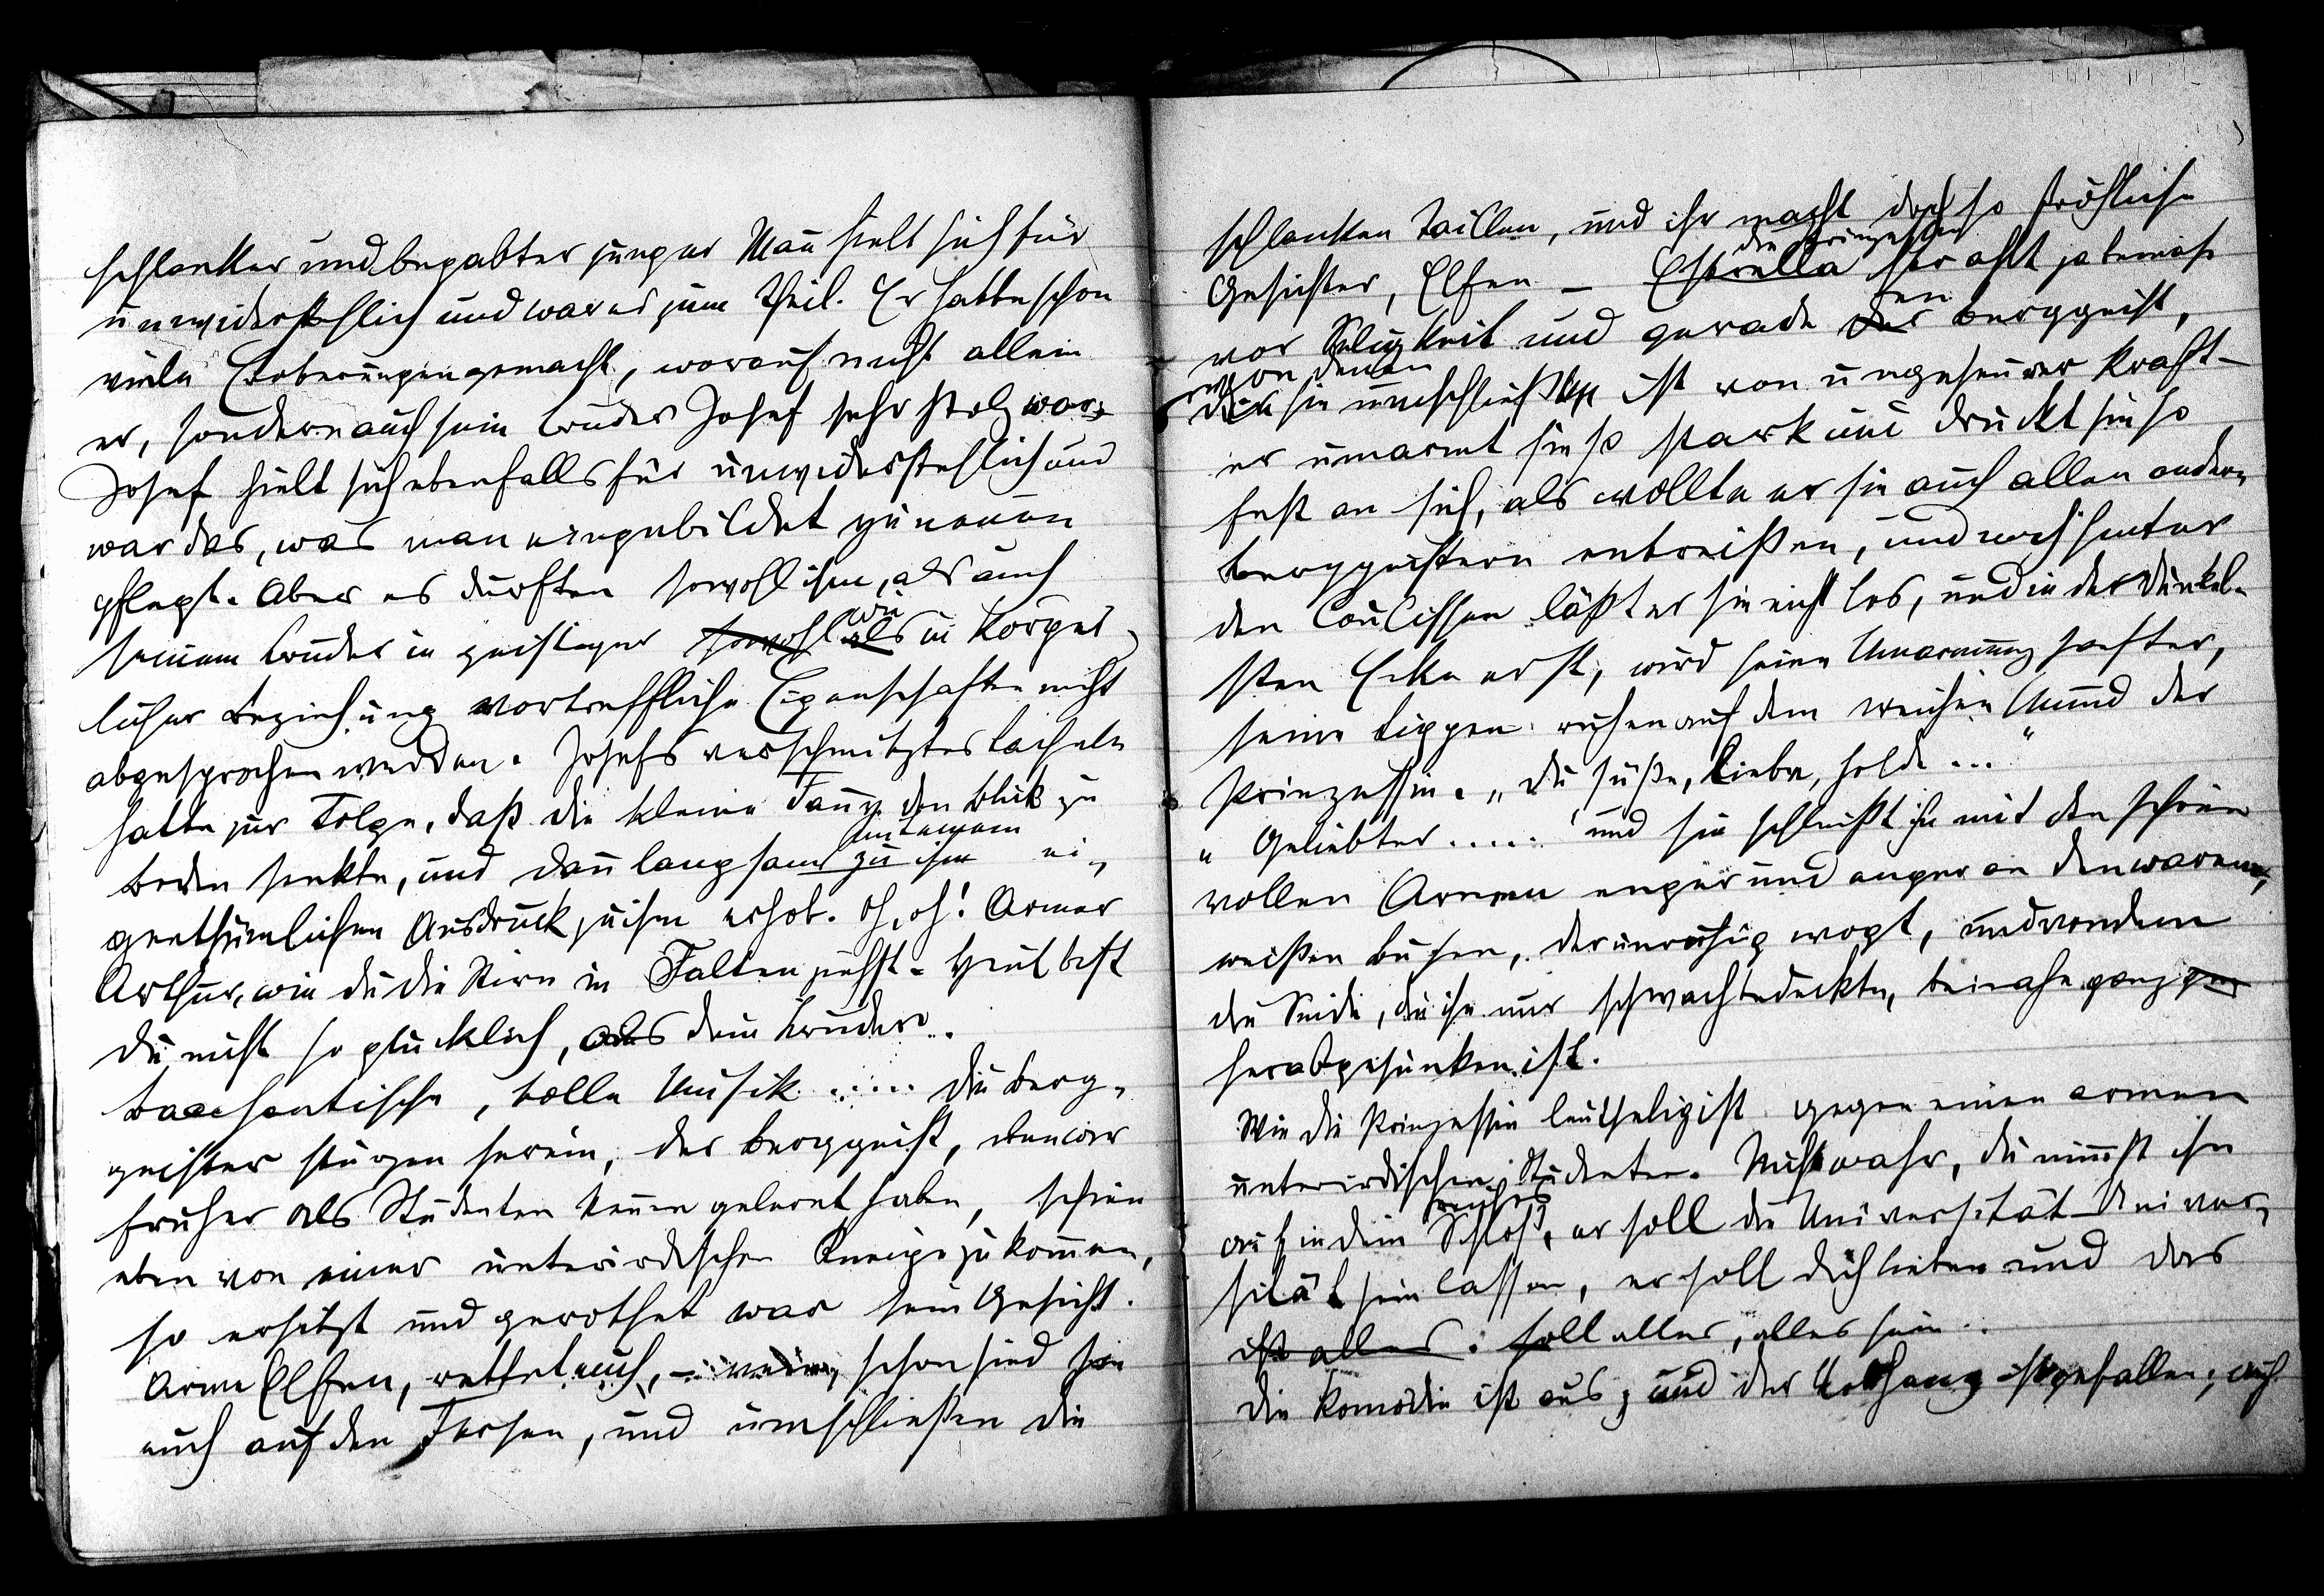 schlanker und begabter junger Mann hielt sich für
unwiderstehlich und war es zum Theil. Er hatte schon
viele Eroberungen gemacht, worauf nicht allein
er, sondern auch sein Bruder Josef sehr stolz war.
Josef hielt sich ebenfalls für unwiderstehlich und
war das, was man eingebildet zu nennen
pflegt. Aber es durften sowohl ihm, als auch
seinem Bruder in geistiger sowohl als wie in körper-
licher Beziehung vortreffliche Eigenschaften nicht
abgesprochen werden. Josefs verschmitztes Lächeln
hatte zur Folge, daß die kleine Fanny den Blick zu
Boden senkte, und dann langsam zu ihm mit einem ei-
genthümlichen Ausdruck zu ihm erhob. Oh, oh! Armer
Arthur, wie du die Stirn in Falten ziehst. Heut bist
du nicht so glücklich, als dein Bruder..
Bacchantische, tolle Musik ..... Die Berg-
geister stürzen herein, der Berggeist, den wir
früher als Studenten kennen gelernt haben, schien
eben von einer unterirdischen Kneipe zu kommen,
so erhitzt und geröthet war sein Gesicht.
Arme Elfen, rettet euch, – nein, schon sind sie
euch auf den Fersen, und umschließen die
schlanken Taillen, und ihr macht doch so fröhliche
Gesichter, Elfen – Estrella die Prinzessin strahlt ja beinahe
vor Seligkeit und gerade der den Berggeist,
von denen
der sie umschließt ist von ungeheurer Kraft –
er umarmt sie so stark und drückt sie so
fest an sich, als wollte er sie auch allen andern
Berggeistern entreißen, und noch hinter
den Coulissen läßt er sie nicht los, und in der dunkel-
sten Ecke erst, wird seine Umarmung sanfter,
seine Lippen ruhen auf dem weichen Mund der
Prinzessin. „Du süße, liebe, holde ..."
„Geliebter ..... und sie schließt ihn mit den schönen
vollen Armen enger und enger an den warmen,
weißen Busen, der unruhig wogt, und von dem
die Seide, die ihn nur schwach bedeckte, beinahe ganz
herabgesunken ist.
Wie die Prinzessin leutselig ist gegen einen armen
unterirdischen Studenten. Nicht wahr, du nimmst ihn
auf in dein reiches Schloß, er soll die Universität Univer-
sität sein lassen, er soll dich lieben und das
ist alles. soll alles, alles sein..
Die Komödie ist aus, und der Vorhang ist gefallen, auch